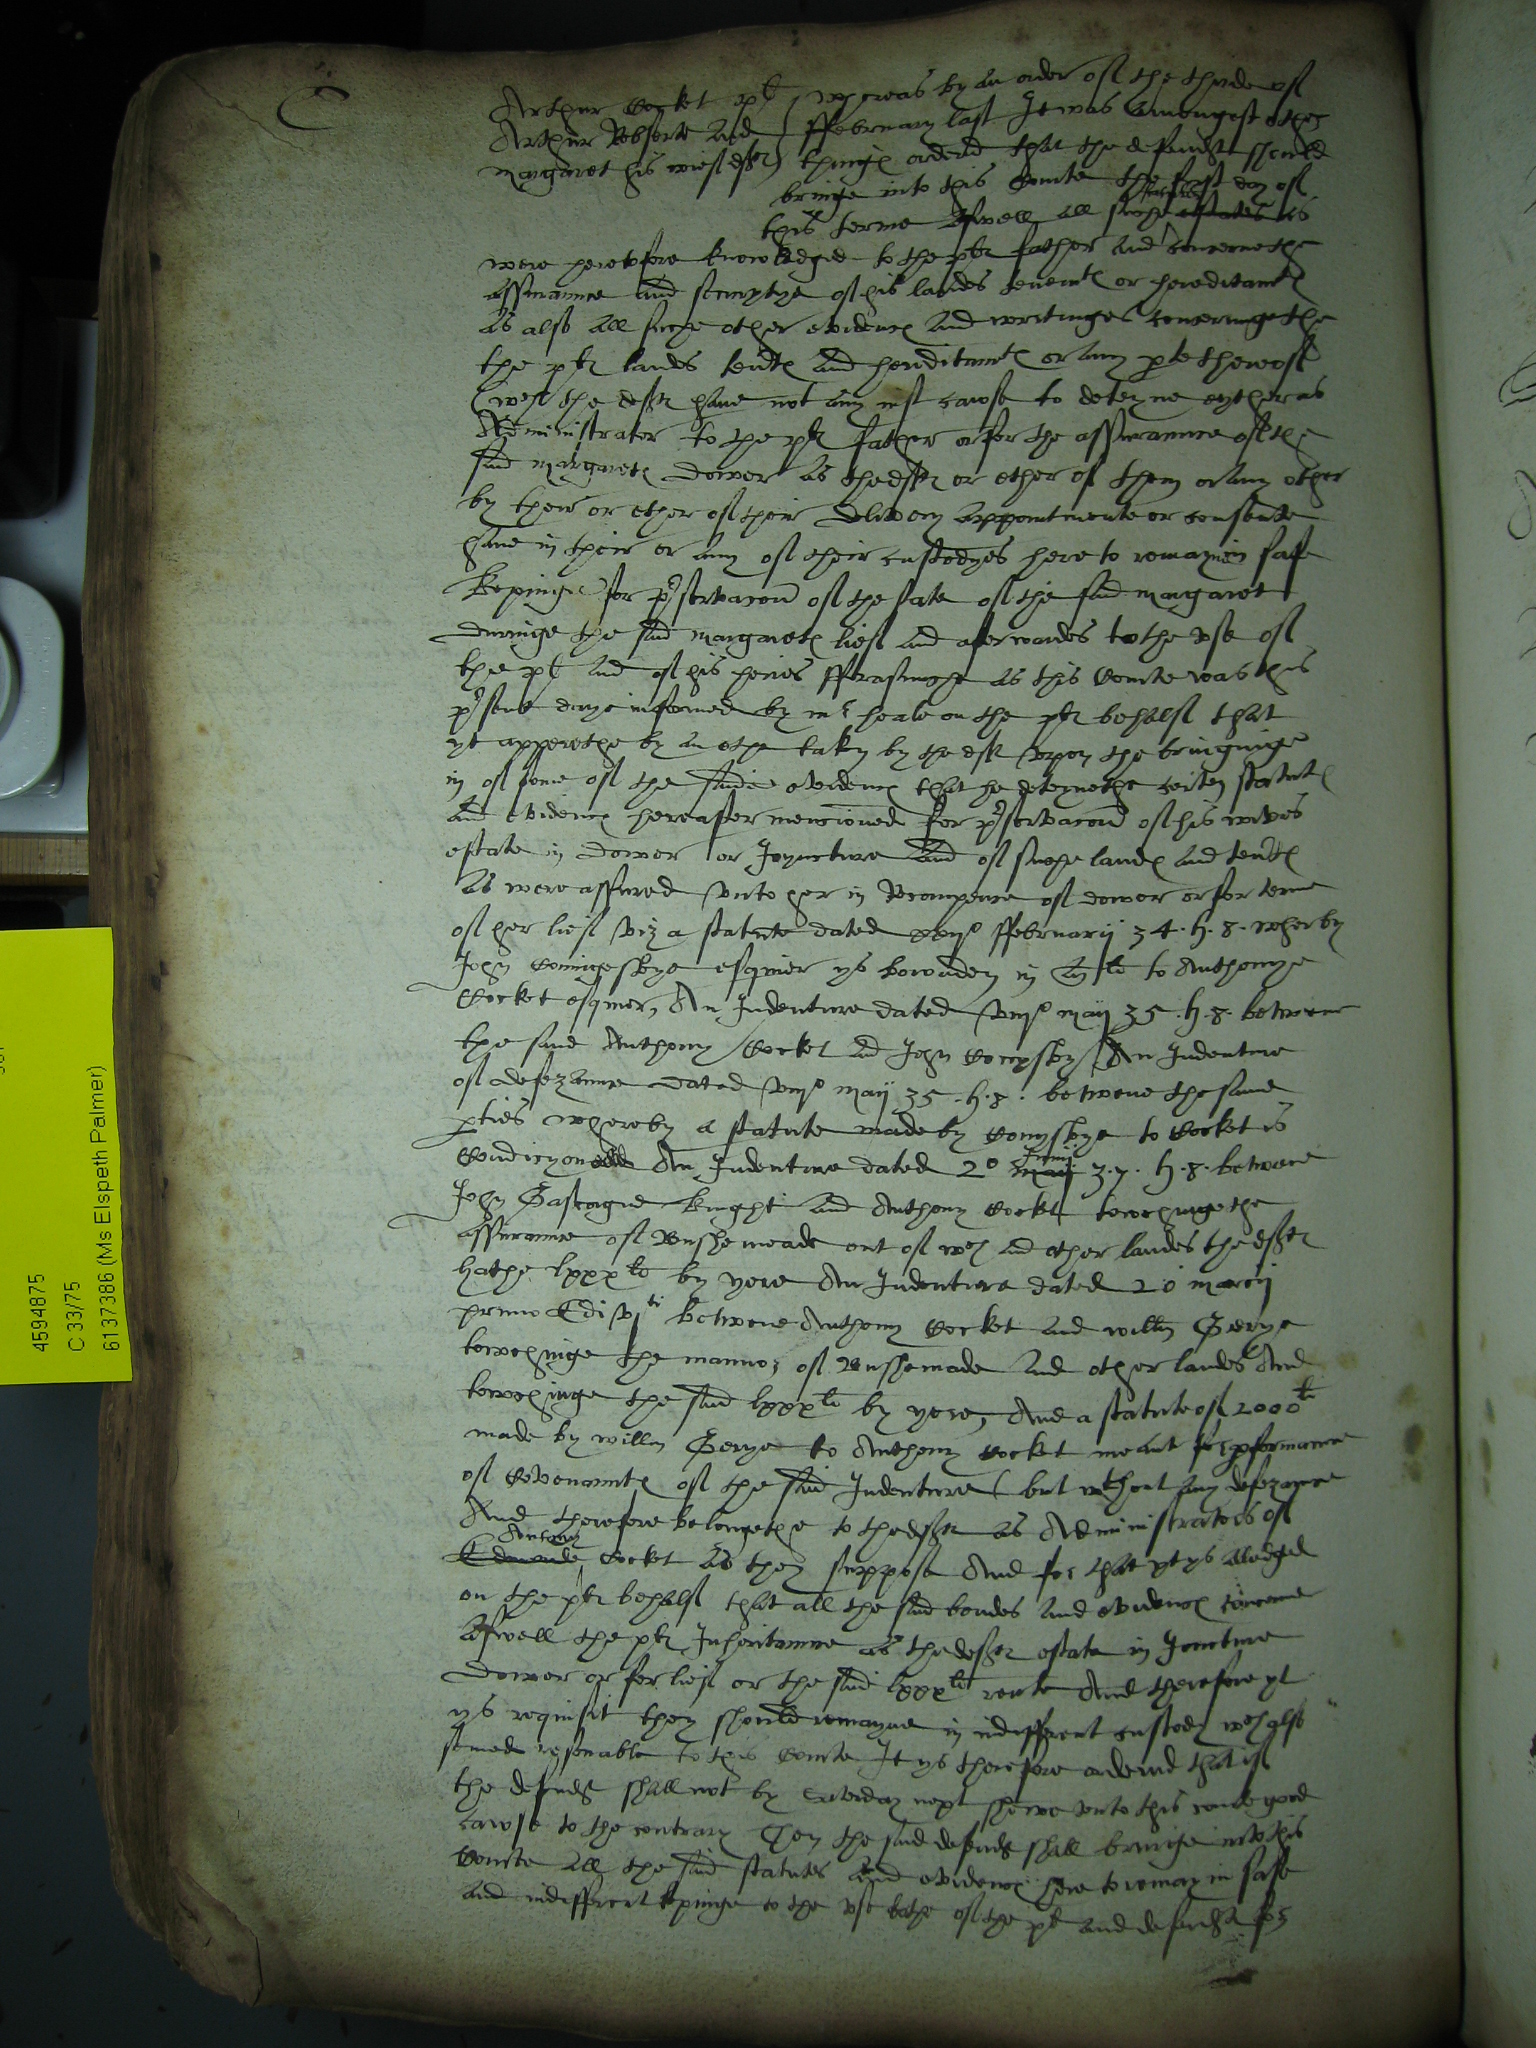 C
Arthur Cocket plt
Arthur Robserte and
Margaret his wief defts
Whereas by an order of the thirde of
Februarij last It was amongest other
thinges ordered that the defendts should
bringe into this Courte the first day of
this terme aswell all suche statutes as
were heretofore knowledged to the plts father and concerne the
assurance and of his landes tenemtes or hereditamtes
as also all suche other evidences and writinges concerninge the
the plts landes tentes and hereditamtes or any parte thereof
wch the defts have not any just cawse to deteyne eyther as
Administrator to the plts father or for the assurannce of the
said Margaretes dower as the defts or ether of them or any other
by their or ether of their delivery appointmente or consente
have in their or any of their custodyes here to remayne in safe
kepinge for preservacon of the state of the said Margaret
duringe the said Margaretes lief and afterwardes to the use of
the plt and of his heires fforasmuche as this Courte was this
present daye informed by mr heale on the plts behalf that
yt apperethe by an othe taken by the deft upon the bringinge
in of some of the saide evidences that he deteynethe certen statutes
and evidences hereafter mencioned for preservacon of his wives
estate in dower or Joyncture and of suche landes and tentes
as were assured unto her in Recompence of dower or for terme
of her lief viz a statute dated Februarij 34 . H . 8 . wherby
John esquier ys bownden in to Anthonye
Cocket esquier, An Indenture dated maij 35 . H . 8 . betwene
the saide Anthony Cocket and John An Indenture
of defezance dated maij 35 . H . 8 . betwene the same
parties whereby a statute made by to Cocket is
Condicyon An Indenture dated 2o Junij 37 . H . 8 . betwene
John Gascoigne knyght and Anthony Cocket towchinge the
assurance of Bushemeade out of wch and other landes the defts
hathe lxxxli by yere An Indenture dated 20 marcij
primo Edi vjti betwene Anthony Cocket and willm Gerye
towchinge the mannor of Bushemeade and other landes And
towchinge the said lxxxli by yere, And a statute of 2000li
made by willm Gerye to Anthony Cocket meant for performance
of Covenauntes of the said Indenture but without any defezance
And therefore belongethe to the defts as Administrators of
Antony Cocket as they suppose And for that yt ys alledged
on the plts behalf that all the said bondes and evidences concerne
aswell the plts Inheritance as the defts estate in Joincture
dower or for lief or the said lxxxli rente And therefore yt
ys requisit they should remayne in indifferent custody wch also
semed resonable to this Courte It ys therefore ordered that if
the defendts shall not by Saterday next shewe unto this courte good
cawse to the contrary Then the said defendts shall bringe into this
Courte all the said statutes and evidences here to remayn in safe
and indifferent kepinge to the use bothe of the plt and defendts for
4594875
C 33/75
6137386 (Ms Elspeth Palmer)